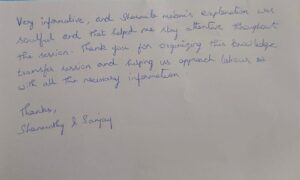 Very informative, and Sharmila madam's explanation was
soulful and that helped me stay attentive throughout
the session. Thank you for organizing this knowledge
transfer session and helping us approach labour so
with all the necessary information.
Thanks,
& Sanjay